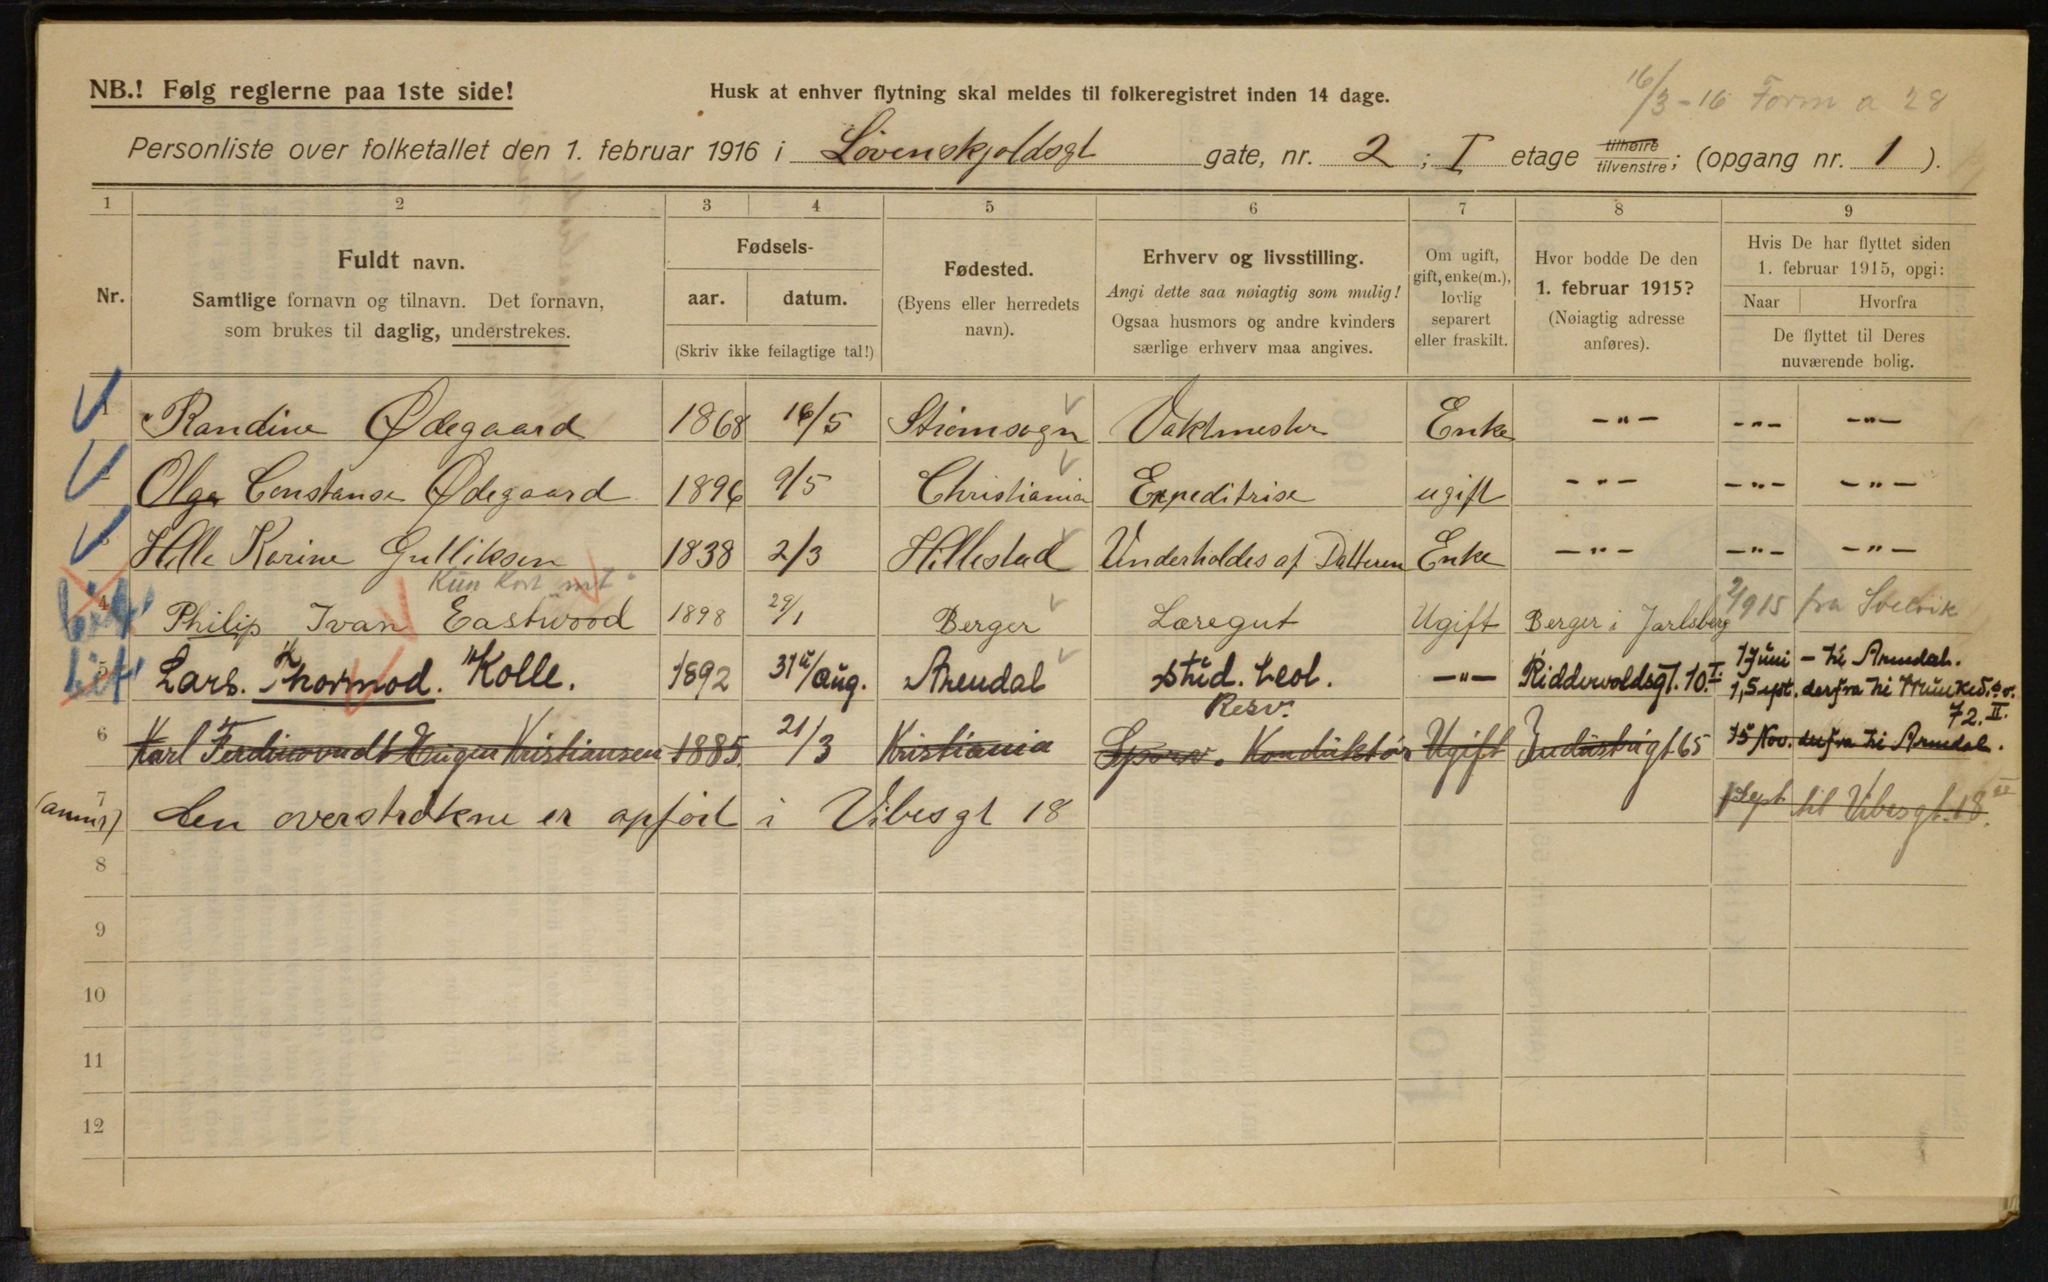 16/3-16 Form a 28
NB.! Følg reglerne paa 1ste side!
Husk at enhver flytning skal meldes til folkeregistret inden 14 dage.
Personliste over folketallet den 1. februar 1916 i Løvenskjoldsgt gate, nr. 2; I etage tilhøire tilvenstre; (opgang nr. 1).
1 2 3 4 5 6 7 8 9
Nr.
Fuldt navn.
Samtlige fornavn og tilnavn. Det fornavn,
som brukes til daglig, understrekes.
Fødsels-
aar. datum.
(Skriv ikke feilagtige tal!)
Fødested.
(Byens eller herredets
navn).
Erhverv og livsstilling.
Angi dette saa nøiagtig som mulig!
Ogsaa husmors og andre kvinders
særlige erhverv maa angives.
Om ugift,
gift, enke(m.),
lovlig
separert
eller fraskilt.
Hvor bodde De den
1. februar 1915?
(Nøiagtig adresse
anføres).
Hvis De har flyttet siden
1. februar 1915, opgi:
Naar Hvorfra
De flyttet til Deres
nuværende bolig.
1 Randine Ødegaard 1868 16/5 Strømsogn Vaktmester Enke -"- -"- -"-
2 Olga Constanse Ødegaard 1896 9/5 Christiania Expeditrise ugift -"- -"- -"-
3 Hille Karine Gulliksen 1838 2/3 Hillestad Underholdes af Datteren Enke -"- -"- -"-
Kun kort
4 Philip Ivan Eastwood 1898 29/1 Berger Læregut Ugift Berger i Jarlsberg 2/9 15 fra Svelvik
5 Lars. Thormod. Kolle. 1892 31/aug. Arendal stud. teol. -"- Riddervoldsgt. 10.I. 1 Juni - til Arendal.
1, Sept. derfra til Munked.v.
72.II.
Resv.
6 Karl Ferdinandt Eugen Kristiansen 1885. 21/3 Kristiania Sporv. Konduktør Ugift Industrigt 65 15 Nov. derfra til Arendal.
7 den overstrøkne er opført i Vibesgt 18 1 Sept til Vibesgt. 18.
8
9
10
11
12